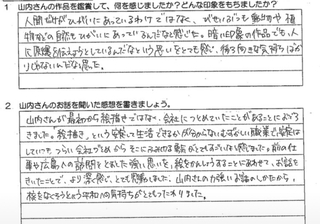 1 山内さんの作品を鑑賞して、何を感じましたか?どんな印象をもちましたか?
人間だけがひがいにあっているわけではなく、どせいぶつも動物や植
物などの自然もひがいにあっているんだなと感じた。暗い印象の作品でも、人
に原爆を伝えようとしているんだなという思いをとても感じ、怖う向きな気持ちばか
りじゃないんだなと思った。
2 山内さんのお話を聞いた感想を書きましょう。
山内さんが最初から絵描きではなく、会社につとめていたことがあることにおどろ
きました。絵描き、という安楽に生活できるか分からないむずかしい職業で
していつも つらい 会社づとめから そこにふみ出す勇気がとてもすごいなと感じました。前の仕
事や広島への訪問をとおした強い思いを、絵をかんしょうすることにあわせて、お話を
きいたことで、より深く感じ、とても感動しました。山内さんの力強いお話のしかたから、
核をなくそうという平和への気持ちがとてもつたわりました。